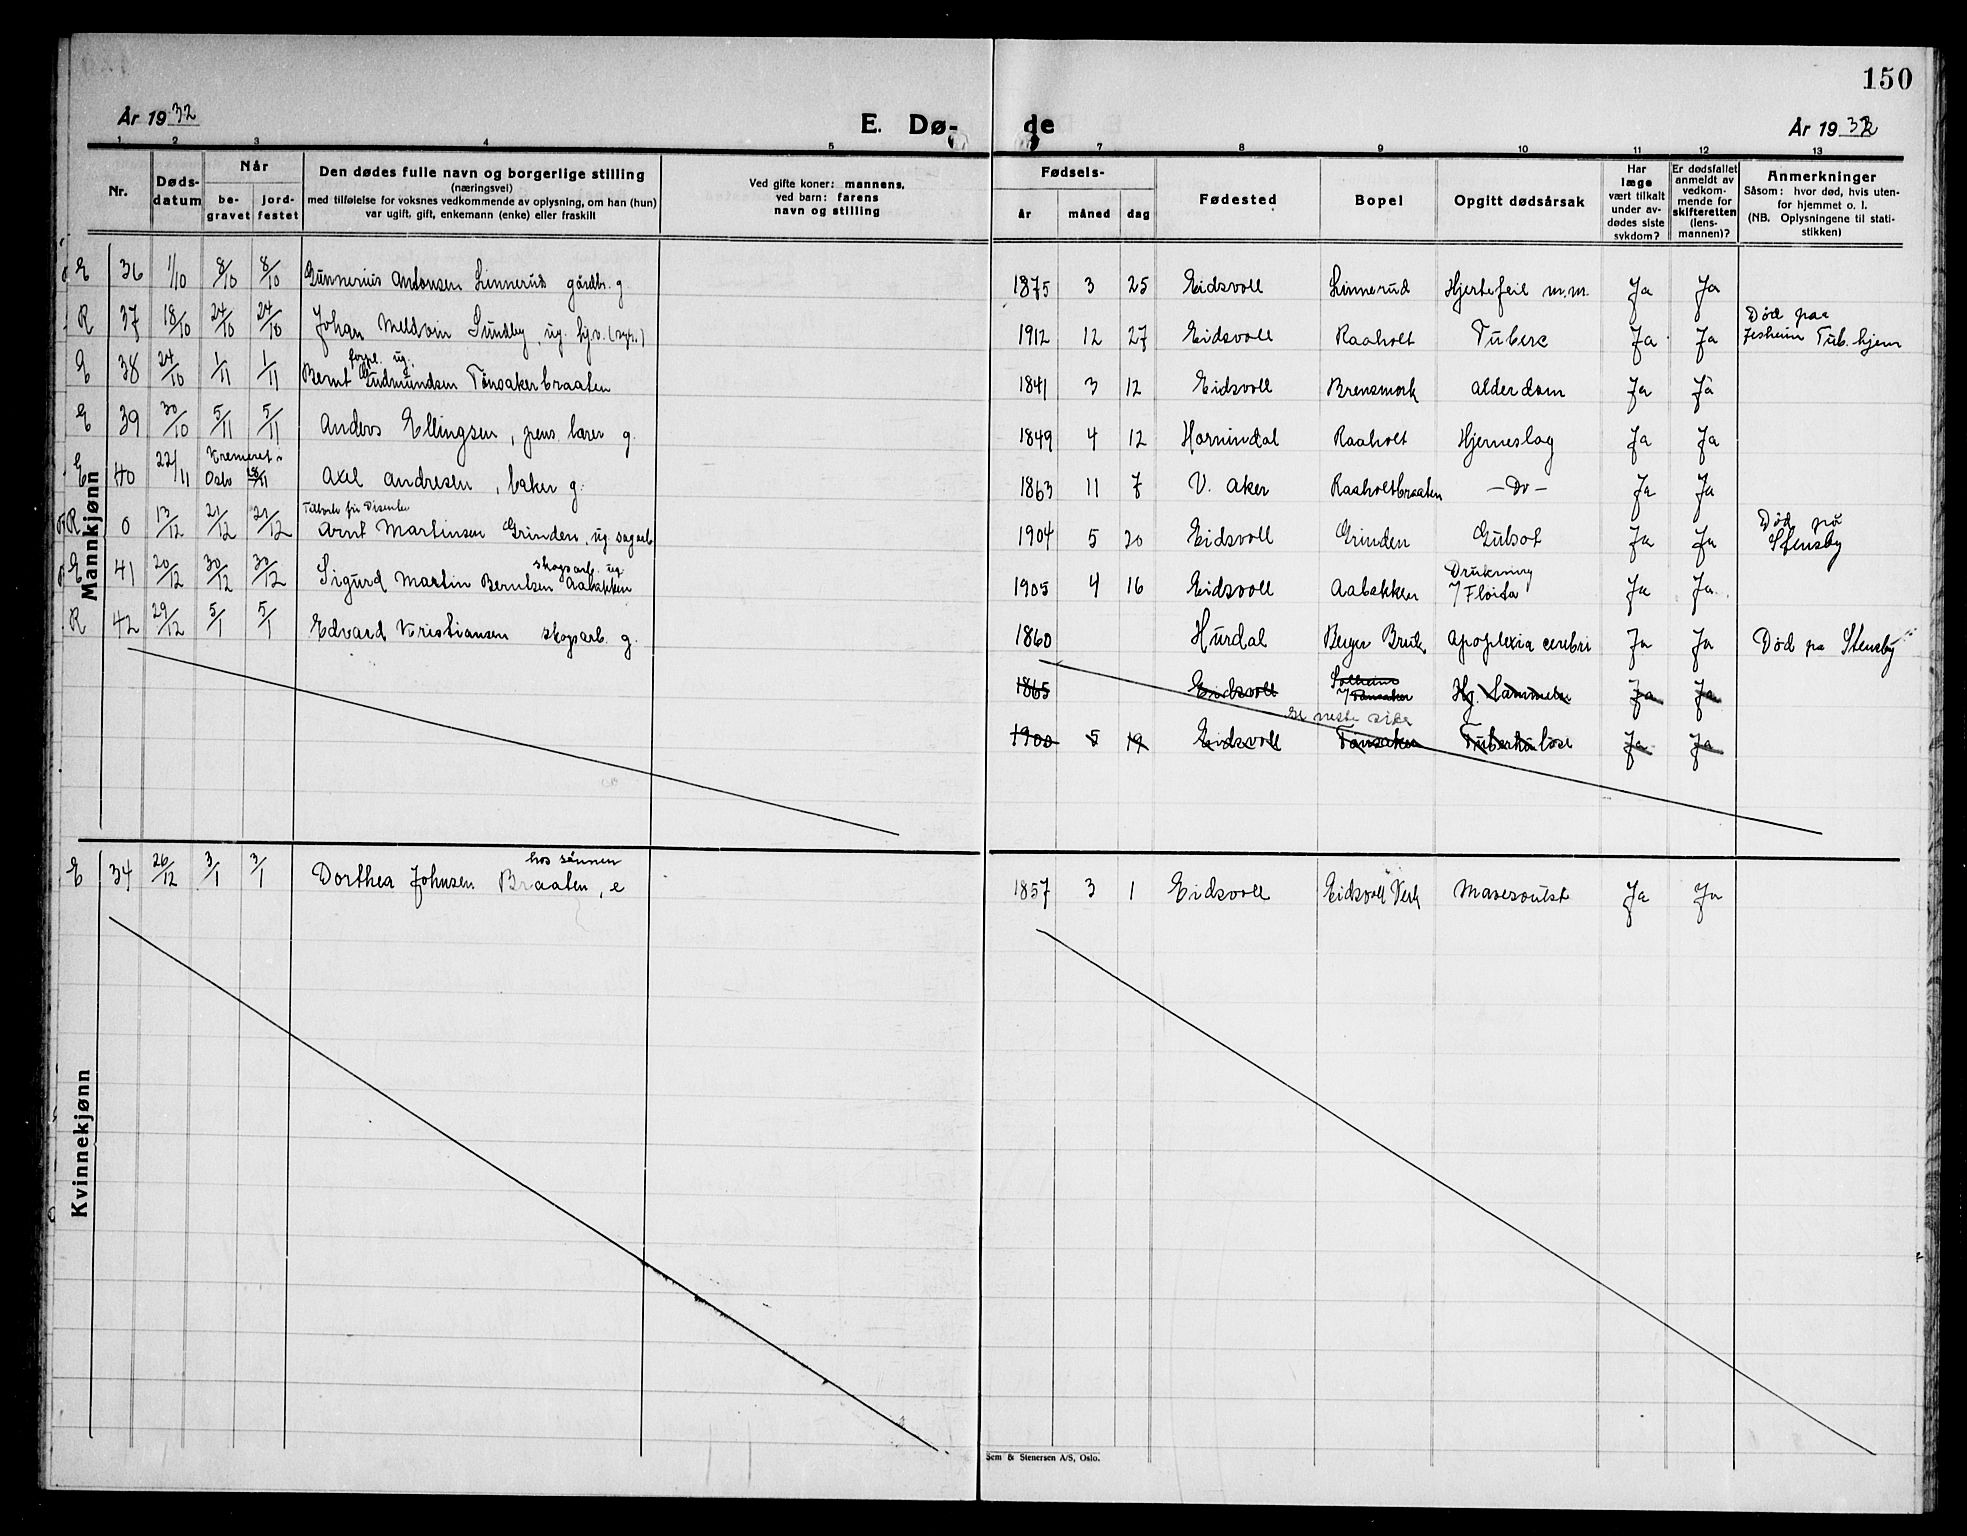 150
År 1932 E. Dø- de År 1932
1 2 3 4 5 7 8 9 10 11 12 13
Nr. Døds-datum Når be-gravet jord-festet Den dødes fulle navn og borgerlige stilling (næringsvei) med tilføielse for voksnes vedkommende av oplysning, om han (hun) var ugift, gift, enkemann (enke) eller fraskilt Ved gifte koner: mannens, ved barn: farens navn og stilling Fødsels- år måned dag Fødested Bopel Opgitt dødsårsak Har læge vært tilkalt under av-dødes siste sykdom? Er dødsfallet anmeldt av vedkom-mende for skifteretten (lens-mannen)? Anmerkninger Såsom: hvor død, hvis uten-for hjemmet o. l. (NB. Oplysningene til stati-stikken)
Mannkjønn
E 36 1/10 8/10 8/10 Gunnerius Antonsen Linnerud gårdbr. g 1875 3 25 Eidsvoll Linnerud Hjertefeil m.m. Ja Ja
R 37 18/10 24/10 24/10 Johan Meldvin Sundby, ug. 1912 12 27 Eidsvoll Raaholt Tuberc Ja Ja Død paa Jesheim Tub. hjem
E 38 24/10 1/11 1/11 forpl. ug. Bernt Gudmundsen Tønsakerbraaten 1841 3 12 Eidsvoll Brensmork Alderdom Ja Ja
E 39 30/10 5/11 5/11 Anders Ellingsen, pens. lærer g. 1849 4 12 Hornindal Raaholt Hjerneslag Ja Ja
E 40 22/11 Kremeret Oslo 28/11 Axel Andresen, baker g. 1863 11 7 V. Aker Raaholtbraaten — Do — Ja Ja
R 0 13/12 21/12 21/12 Arnt Martinsen Grinden, ug. sagarb 1904 5 20 Eidsvoll Grinden Gulsot Ja Ja Død på Stensby
E 41 20/12 30/12 30/12 Sigurd Martin Berntsen Aabakken skogsarb. ug. 1905 4 16 Eidsvoll Aabakken Drukning i Fløita Ja Ja
R 42 29/12 5/1 5/1 Edvard Kristiansen skogsarb. g. 1860 Hurdal Berger Bruk Apoplexia cerebri Ja Ja Død pa Stensby
1865 Eidsvoll Solheim i/ Tønsaker Hj. Lammelse Ja Ja
se neste side
1900 5 19 Eidsvoll Tønsaker Tuberkulose Ja Ja
Kvinnekjønn
E 34 26/12 3/1 3/1 Dorthea Johnsen Braaten, e hos sønnen 1857 3 1 Eidsvoll Eidsvoll Verk Mavesvulst Ja Ja
Sem & Stenersen A/S, Oslo.